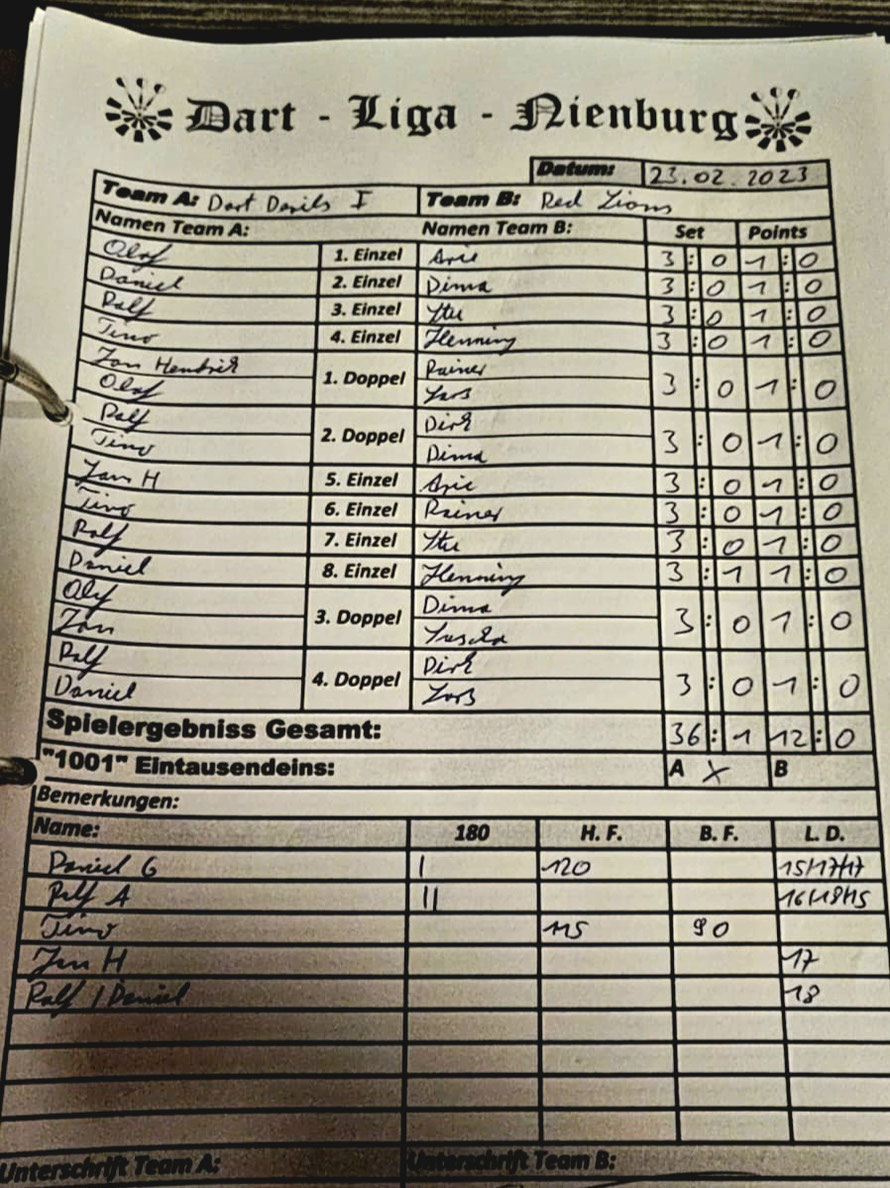 Dart - Liga - Nienburg
Datum: 23.02.2023
Team A: Dart Devils I Team B: Red Lions
Namen Team A: Namen Team B: Set Points
Olaf 1. Einzel Arie 3 : 0 1 : 0
Daniel 2. Einzel Dima 3 : 0 1 : 0
Ralf 3. Einzel 3 : 0 1 : 0
Tino 4. Einzel Henning 3 : 0 1 : 0
Jan Hendrik Rainer
1. Doppel 3 : 0 1 : 0
Olaf Lars
Ralf Dirk
2. Doppel 3 : 0 1 : 0
Tino Dima
Jan H 5. Einzel Arie 3 : 0 1 : 0
Tino 6. Einzel Rainer 3 : 0 1 : 0
Ralf 7. Einzel 3 : 0 1 : 0
Daniel 8. Einzel Henning 3 : 1 1 : 0
Olaf Dima
3. Doppel 3 : 0 1 : 0
Jan
Ralf Dirk
4. Doppel 3 : 0 1 : 0
Daniel Lars
Spielergebniss Gesamt: 36 : 1 12 : 0
"1001" Eintausendeins: A X B
Bemerkungen:
Name: 180 H. F. B. F. L. D.
Daniel G I 120 15/17/17
Ralf A II 16/18/15
Tino 115 90
Jan H 17
Ralf / Daniel 18
Unterschrift Team A: Unterschrift Team B: